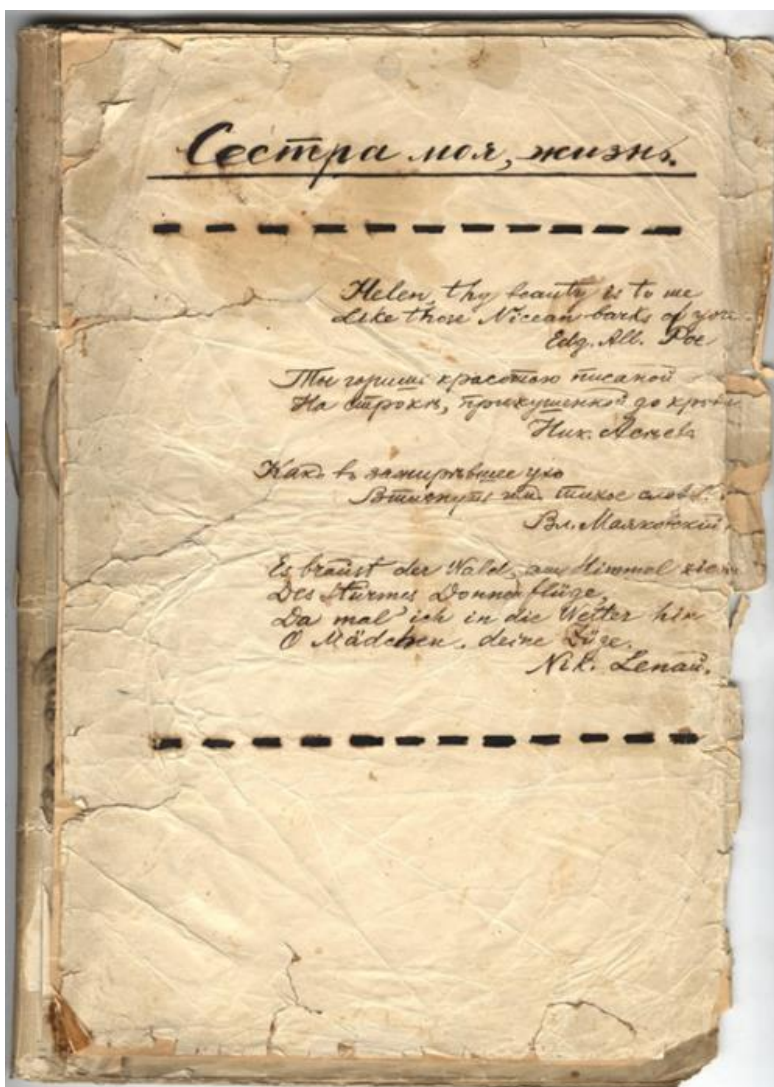 Сестра моя, жизнь.
Helen, thy beauty is to me
Like those Nicean barks of yore.
Edg. All. Poe
Ты горишь красотою писаной
На строкѣ, прикушенной до крови
Ник. Асѣевъ
Какъ въ зажирѣвшее ухо
Втиснуть имъ тихое слово?
Вл. Маяковскій
Es braust der Wald, am Himmel ziehn
Des Sturmes Donnerflüge,
Da mal' ich in die Wetter hin
O Mädchen, deine Züge.
Nik. Lenau.